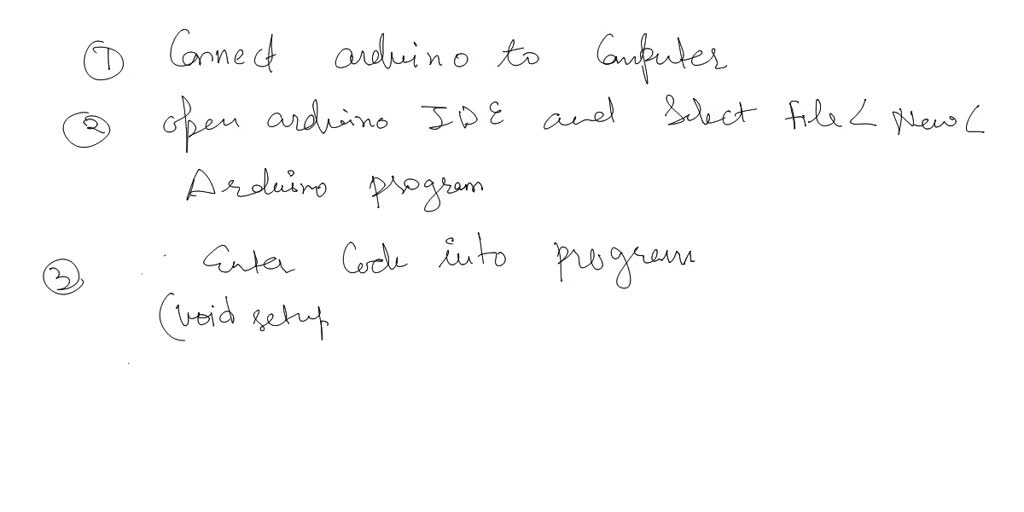 ① Connect arduino to Computer
② open arduino IDE and Select file < New <
Arduino program
③ Enter Code into program
(void setup